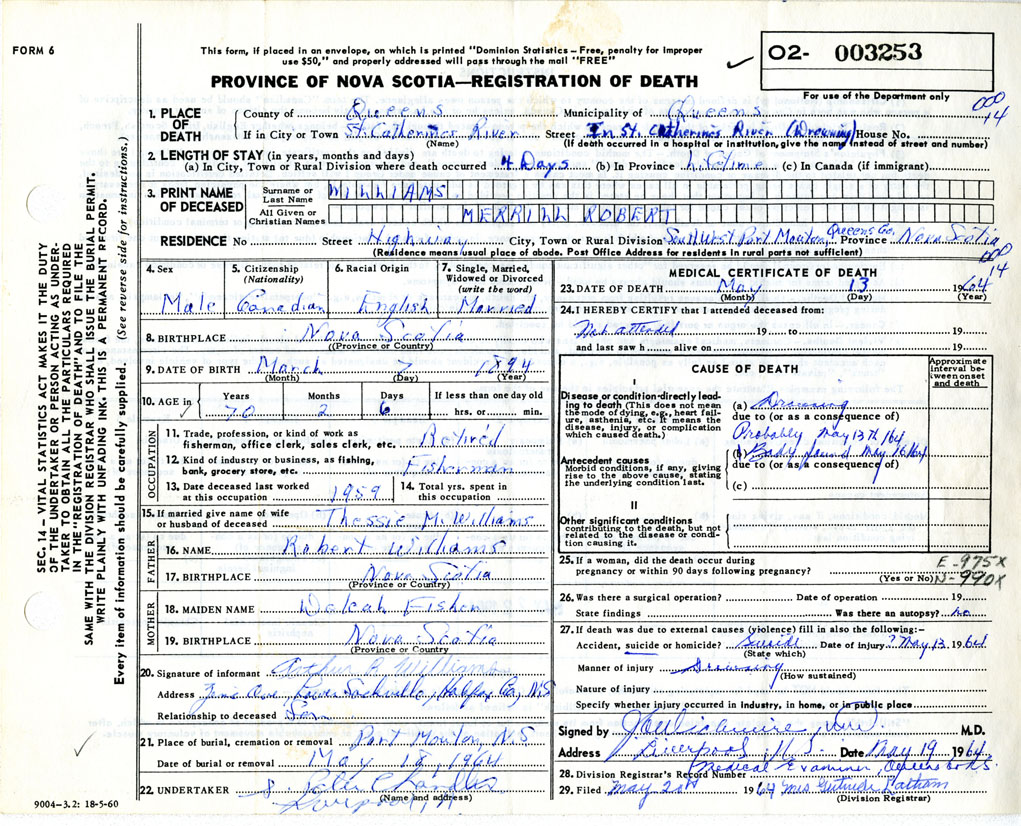 FORM 6
This form, if placed in an envelope, on which is printed "Dominion Statistics – Free, penalty for improper
use $50," and properly addressed will pass through the mail "FREE"
02- 003253
PROVINCE OF NOVA SCOTIA—REGISTRATION OF DEATH
For use of the Department only
000
14
1. PLACE OF DEATH
County of Queens Municipality of Queens
If in City or Town St. Catherines River Street In St. Catherines River (Drowning) House No.
(Name) (If death occurred in a hospital or institution, give the name instead of street and number)
2. LENGTH OF STAY (in years, months and days)
(a) In City, Town or Rural Division where death occurred 4 Days (b) In Province Lifetime (c) In Canada (if immigrant)
3. PRINT NAME OF DECEASED
Surname or Last Name WILLIAMS
All Given or Christian Names MERRILL ROBERT
RESIDENCE No Street Highway City, Town or Rural Division South West Port Mouton Queens Co. Province Nova Scotia
(Residence means usual place of abode. Post Office Address for residents in rural parts not sufficient)
000
14
4. Sex Male
5. Citizenship (Nationality) Canadian
6. Racial Origin English
7. Single, Married, Widowed or Divorced (write the word) Married
8. BIRTHPLACE Nova Scotia
(Province or Country)
9. DATE OF BIRTH March 7 1894
(Month) (Day) (Year)
10. AGE in Years Months Days If less than one day old
70 2 6 hrs. or min.
OCCUPATION
11. Trade, profession, or kind of work as fisherman, office clerk, sales clerk, etc. Retired
12. Kind of industry or business, as fishing, bank, grocery store, etc. Fisherman
13. Date deceased last worked at this occupation 1959
14. Total yrs. spent in this occupation
15. If married give name of wife or husband of deceased Thessie M. Williams
FATHER
16. NAME Robert Williams
17. BIRTHPLACE Nova Scotia
(Province or Country)
MOTHER
18. MAIDEN NAME Fisher
19. BIRTHPLACE Nova Scotia
(Province or Country)
20. Signature of informant Arthur R. Williams
Address Lower Sackville, Halifax Co, N.S
Relationship to deceased Son
21. Place of burial, cremation or removal Port Mouton N.S
Date of burial or removal May 18, 1964
22. UNDERTAKER Chandler
(Name and address)
Liverpool
9004–3.2: 18-5-60
MEDICAL CERTIFICATE OF DEATH
23. DATE OF DEATH May 13 1964
(Month) (Day) (Year)
24. I HEREBY CERTIFY that I attended deceased from:
Not attended 19 to 19
and last saw h alive on 19
CAUSE OF DEATH
Approximate interval between onset and death
I
Disease or condition directly leading to death (This does not mean the mode of dying, e.g., heart failure, asthenia, etc. It means the disease, injury, or complication which caused death.)
(a) Drowning
due to (or as a consequence of)
Probably May 13th/64
Antecedent causes
Morbid conditions, if any, giving rise to the above cause, stating the underlying condition last.
(b) Body found May 16/64
due to (or as a consequence of)
(c)
II
Other significant conditions contributing to the death, but not related to the disease or condition causing it.
25. If a woman, did the death occur during pregnancy or within 90 days following pregnancy?
(Yes or No)
E-975X
N-990X
26. Was there a surgical operation? Date of operation 19
State findings Was there an autopsy? no
27. If death was due to external causes (violence) fill in also the following:–
Accident, suicide or homicide? Suicide Date of injury ? May 13 1964
(State which)
Manner of injury Drowning
(How sustained)
Nature of injury
Specify whether injury occurred in industry, in home, or in public place
Signed by M.D.
Address Liverpool N.S. Date May 19 1964
Medical Examiner, Queens Co N.S.
28. Division Registrar's Record Number
29. Filed May 20th 1964 Mrs Gertrude Latham
(Division Registrar)
SEC. 14 – VITAL STATISTICS ACT MAKES IT THE DUTY
OF THE UNDERTAKER OR PERSON ACTING AS UNDER-
TAKER TO OBTAIN ALL THE PARTICULARS REQUIRED
IN THE "REGISTRATION OF DEATH" AND TO FILE THE
SAME WITH THE DIVISION REGISTRAR WHO SHALL ISSUE THE BURIAL PERMIT.
WRITE PLAINLY WITH UNFADING INK. THIS IS A PERMANENT RECORD.
Every item of information should be carefully supplied. (See reverse side for instructions.)